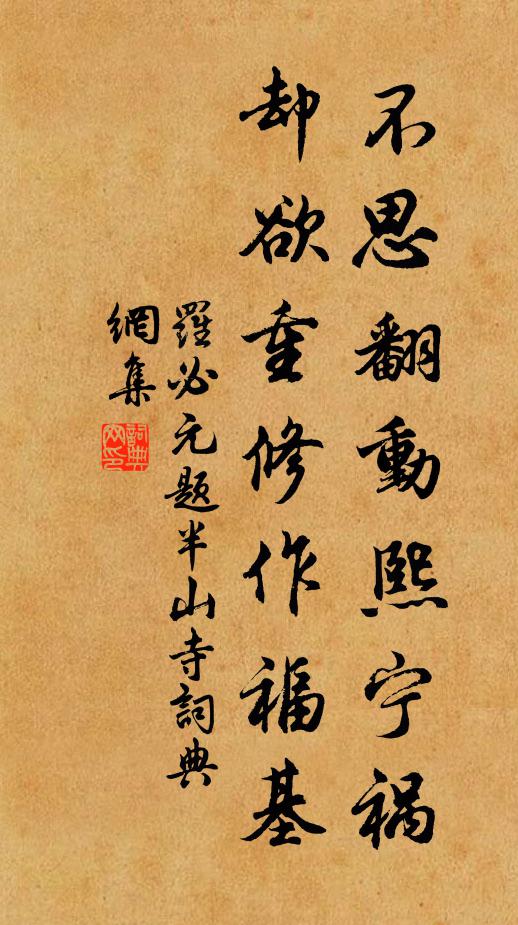 不思翻動熙宁祸
却欲重修作福基
羅必元题半山寺詞典
網集
詞典
网印